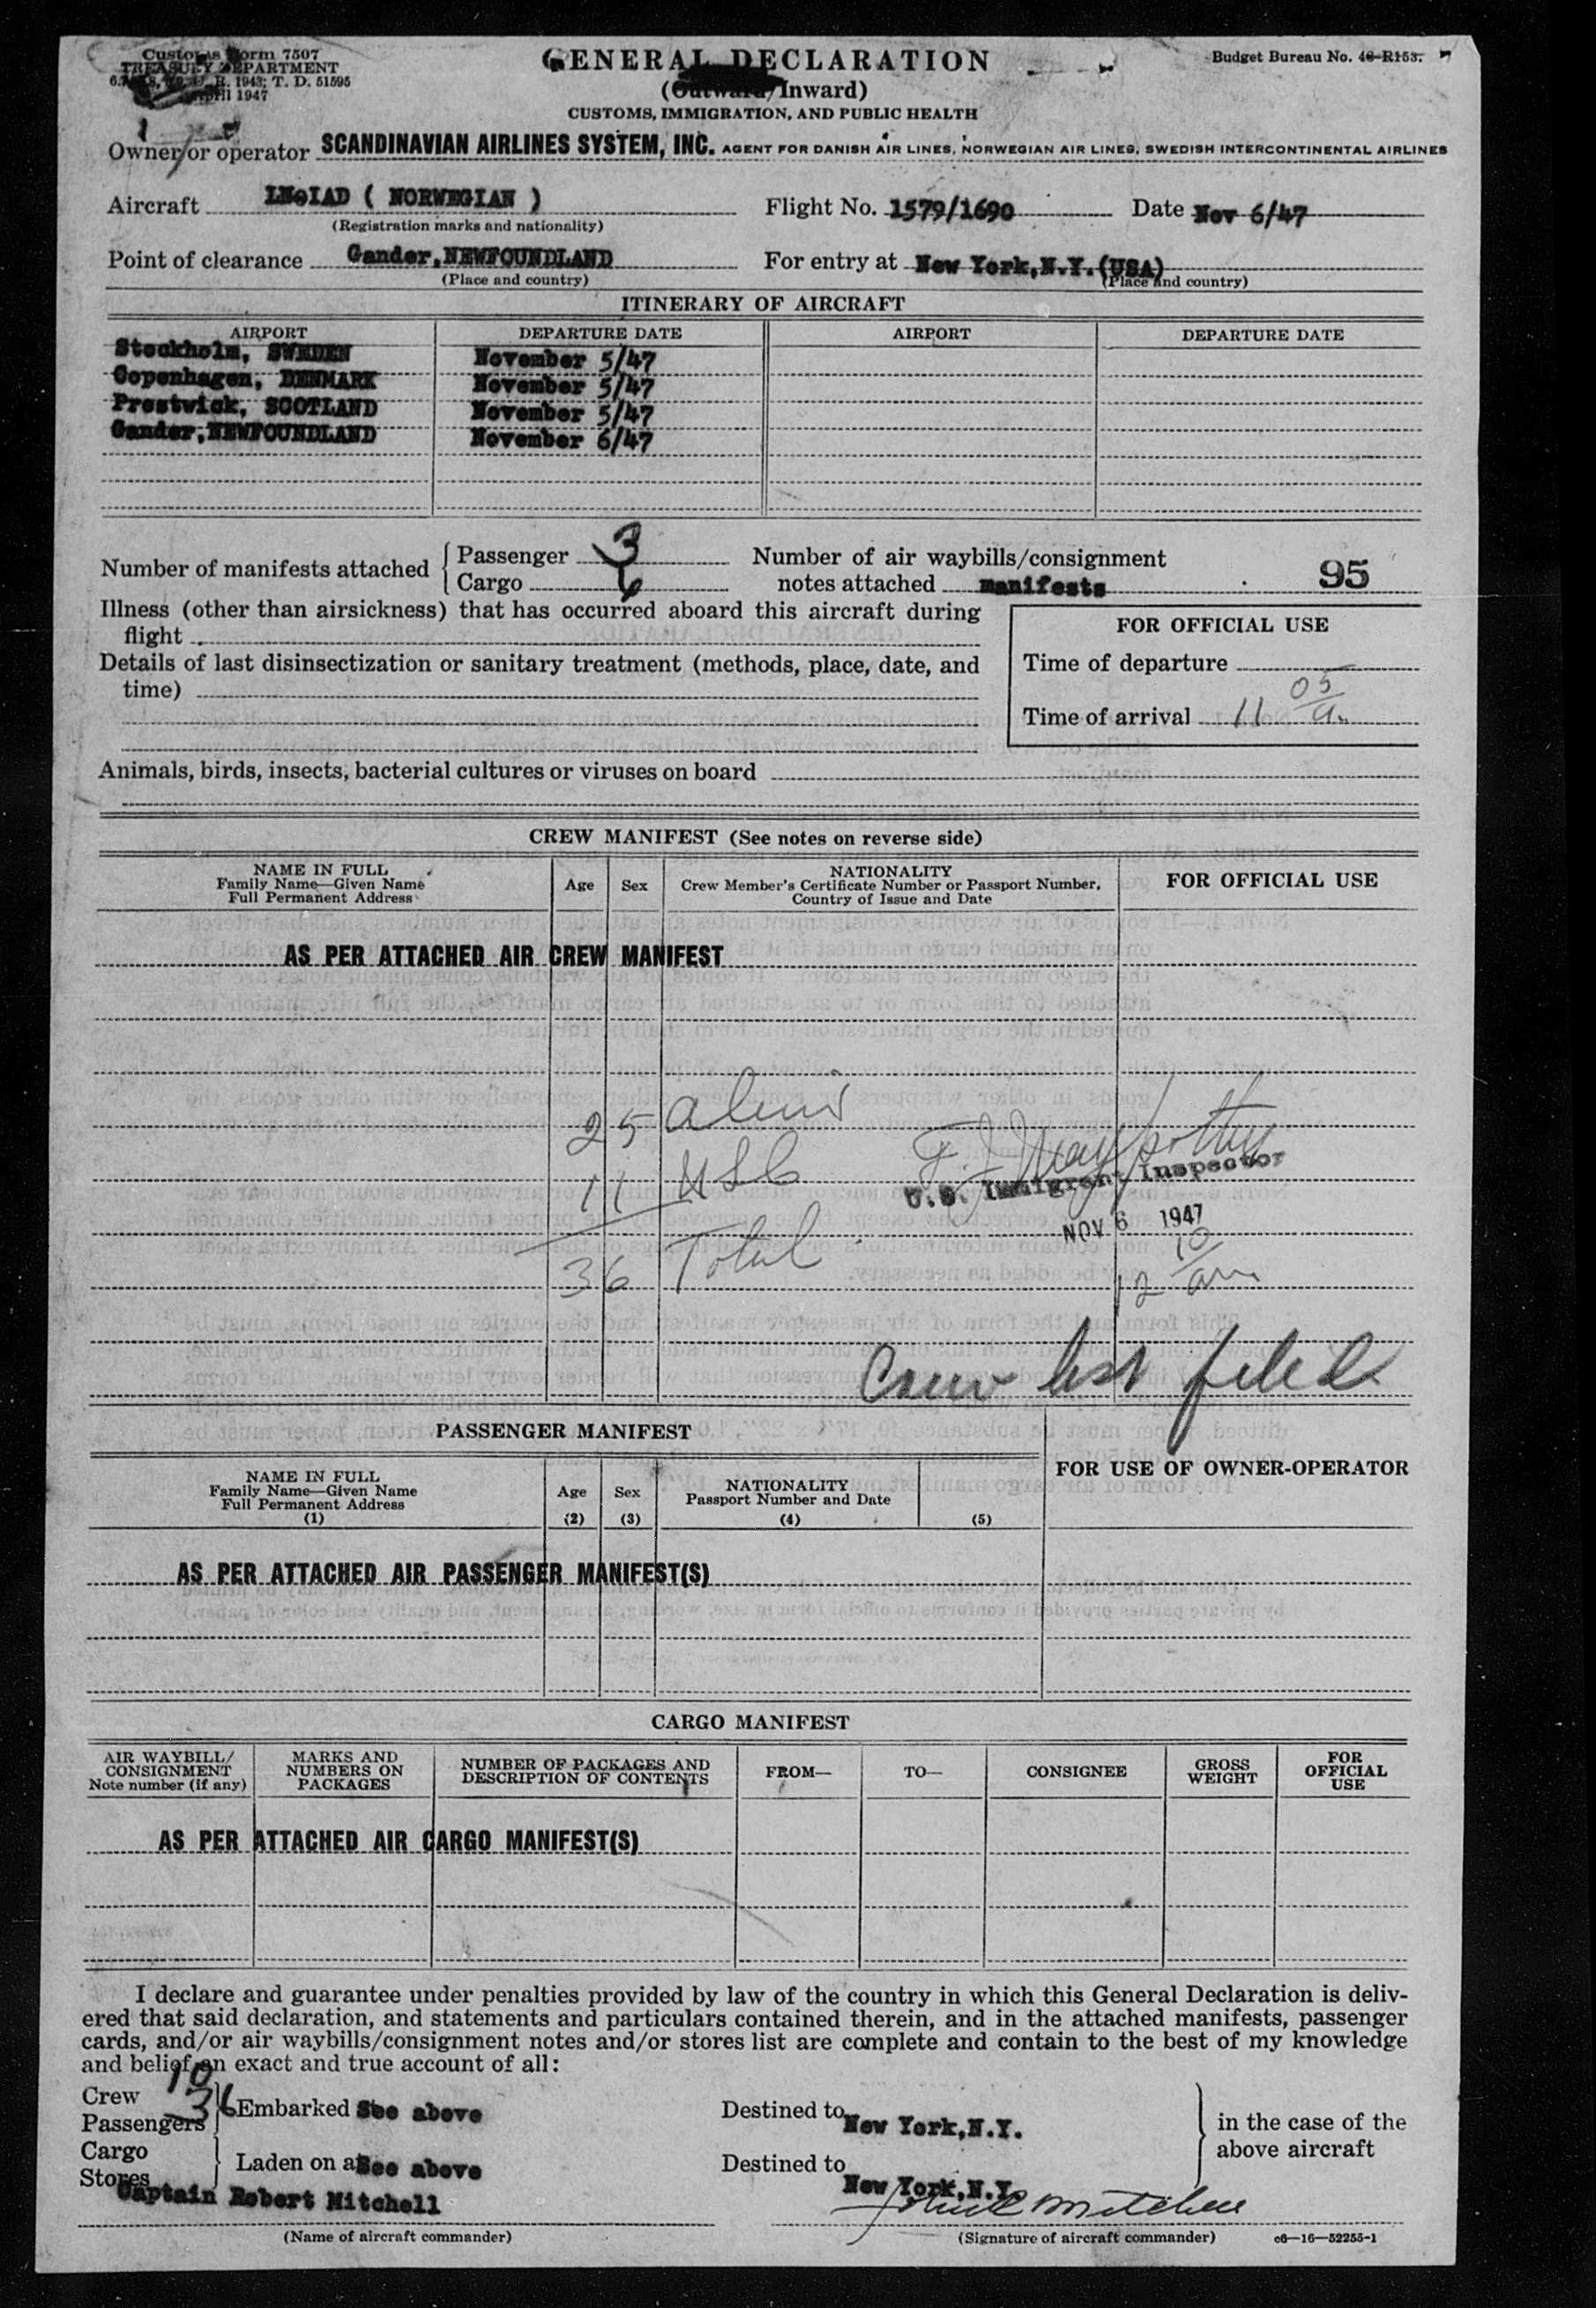 Customs Form 7507
TREASURY DEPARTMENT
R. 1943; T. D. 51595
April 1947
GENERAL DECLARATION
(Outward/Inward)
CUSTOMS, IMMIGRATION, AND PUBLIC HEALTH
Budget Bureau No. 48-R153.
Owner/or operator SCANDINAVIAN AIRLINES SYSTEM, INC. AGENT FOR DANISH AIR LINES, NORWEGIAN AIR LINES, SWEDISH INTERCONTINENTAL AIRLINES
Aircraft LN-IAD ( NORWEGIAN ) Flight No. 1579/1690 Date Nov 6/47
(Registration marks and nationality)
Point of clearance Gander, NEWFOUNDLAND For entry at New York, N.Y. (USA)
(Place and country) (Place and country)
ITINERARY OF AIRCRAFT
AIRPORT DEPARTURE DATE AIRPORT DEPARTURE DATE
Stockholm, SWEDEN November 5/47
Copenhagen, DENMARK November 5/47
Prestwick, SCOTLAND November 5/47
Gander, NEWFOUNDLAND November 6/47
Number of manifests attached Passenger 3 Number of air waybills/consignment
Cargo 6 notes attached manifests 95
Illness (other than airsickness) that has occurred aboard this aircraft during
flight
FOR OFFICIAL USE
Details of last disinsectization or sanitary treatment (methods, place, date, and
time)
Time of departure
Time of arrival 11 05 a.
Animals, birds, insects, bacterial cultures or viruses on board
CREW MANIFEST (See notes on reverse side)
NAME IN FULL
Family Name—Given Name
Full Permanent Address
Age Sex
NATIONALITY
Crew Member's Certificate Number or Passport Number,
Country of Issue and Date
FOR OFFICIAL USE
AS PER ATTACHED AIR CREW MANIFEST
25 aliens
11 USC
U.S. Immigrant Inspector
NOV 6 1947
36 Total
12 10 am
Crew list filed
PASSENGER MANIFEST
NAME IN FULL
Family Name—Given Name
Full Permanent Address
(1)
Age
(2)
Sex
(3)
NATIONALITY
Passport Number and Date
(4)
(5)
FOR USE OF OWNER-OPERATOR
AS PER ATTACHED AIR PASSENGER MANIFEST(S)
CARGO MANIFEST
AIR WAYBILL/
CONSIGNMENT
Note number (if any)
MARKS AND
NUMBERS ON
PACKAGES
NUMBER OF PACKAGES AND
DESCRIPTION OF CONTENTS
FROM—
TO—
CONSIGNEE
GROSS
WEIGHT
FOR
OFFICIAL
USE
AS PER ATTACHED AIR CARGO MANIFEST(S)
I declare and guarantee under penalties provided by law of the country in which this General Declaration is deliv-
ered that said declaration, and statements and particulars contained therein, and in the attached manifests, passenger
cards, and/or air waybills/consignment notes and/or stores list are complete and contain to the best of my knowledge
and belief an exact and true account of all:
Crew 10
Passengers 36 Embarked See above Destined to New York, N.Y. in the case of the
above aircraft
Cargo
Stores Laden on a See above Destined to New York, N.Y.
Captain Robert Mitchell
(Name of aircraft commander) (Signature of aircraft commander) c6—16—52255-1